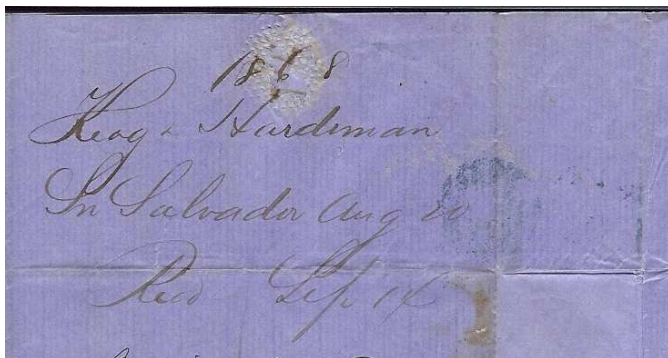 1868
Keog & Hardiman
Sn Salvador Aug 20
Recd Sep 14